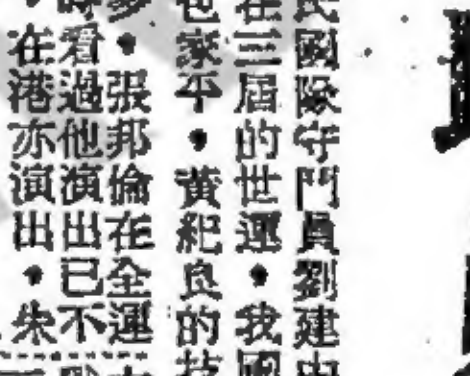 民國隊守門員劉建
在三屆的世運，我國
也家平，黃紀良的技
張邦倫在全運
時看過他演出已不
在港亦演出，朱